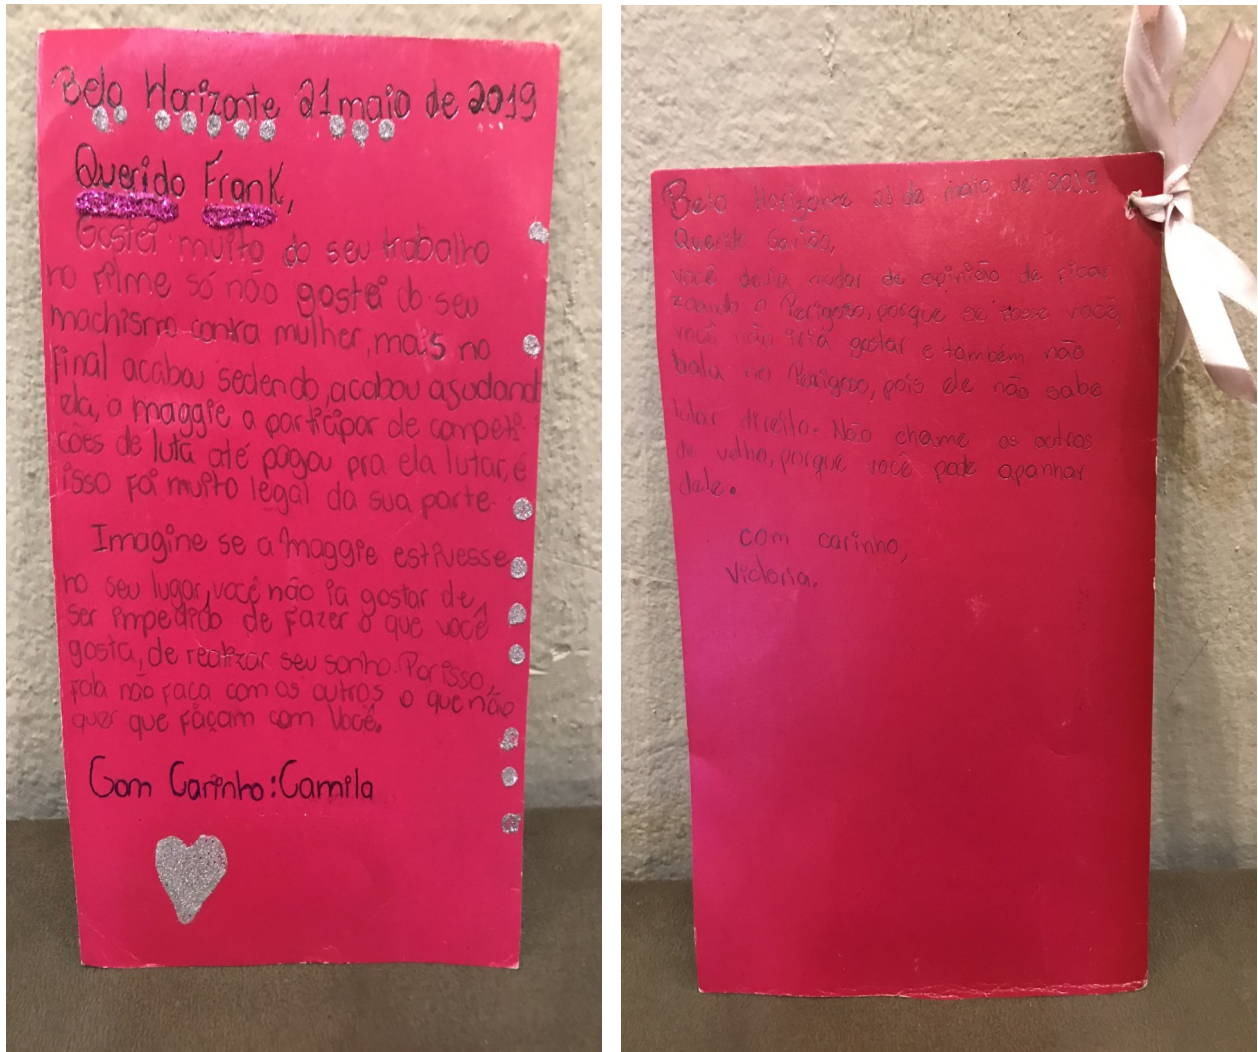 Belo Horizonte 21 maio de 2019
Querido Frank,
Gostei muito do seu trabalho
no filme só não gostei do seu
machismo contra mulher, mais no
final acabou sedendo, acabou ajudand
ela, a maggie a participar de competi-
ções de luta até pagou pra ela lutar, e
isso foi muito legal da sua parte.
Imagine se a Maggie estivesse
no seu lugar, você não ia gostar de
ser impedido de fazer o que você
gosta, de realizar seu sonho. Por isso,
fala não faça com os outros o que não
quer que façam com você.
Com Carinho: Camila
Belo Horizonte 21 de maio de 2019
Querido
você devia mudar de opinião de ficar
zoando o Perigoso, porque se fosse você,
você não iria gostar e também não
bata no Perigoso, pois ele não sabe
lutar direito. Não chame os outros
de velho, porque você pode apanhar
dele.
com carinho,
Victoria.